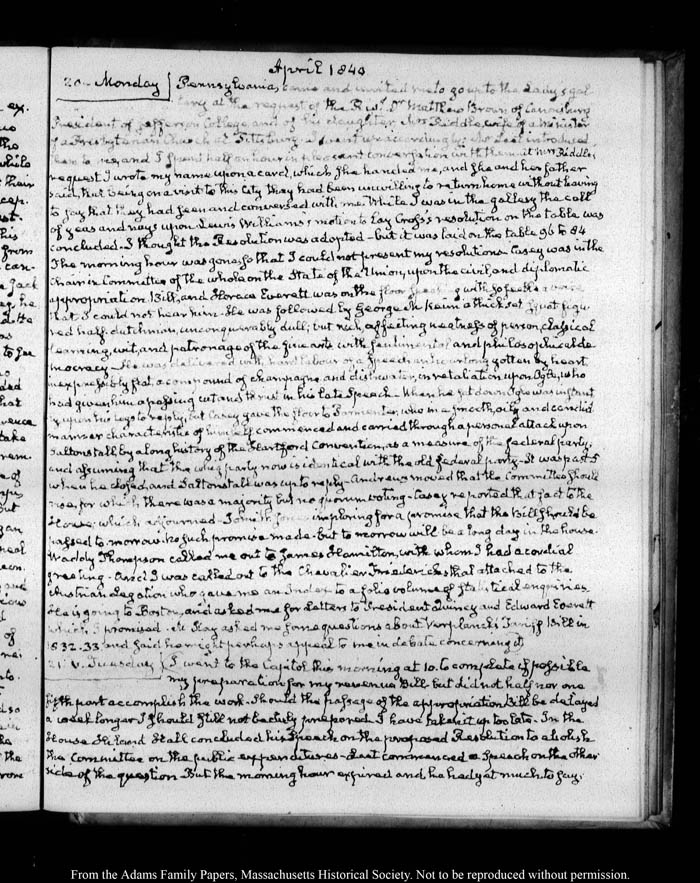 April 1840
20. Monday Pennsylvania, came and invited me to go up to the Lady's gal-
lery at the request of the Revd. Dr. Matthew Brown of Canonsburg
President of Jefferson College, and of his daughter, Mrs Riddle, wife of a Minister
of a Presbyterian Church at Pittsburg. I went up accordingly. introduced
them to me, and I spent half an hour in pleasant conversation with them. at Mrs Riddle's
request I wrote my name upon a card, which she handed me, and she and her father
said, that being on a visit to this City they had been unwilling to return home without having
to say that they had seen and conversed with me. While I was in the gallery the call
of yeas and nays upon Lewis Williams's motion to lay Cross's resolution on the table was
concluded. I thought the Resolution was adopted - but it was laid on the table 96 to 84
The morning hour was gone, so that I could not present my resolutions. Casey was in the
Chair in Committee of the whole on the State of the Union, upon the civil and diplomatic
appropriation Bill, and Horace Everett was on the floor speaking with so feeble a voice
that I could not hear him. He was followed by George M. Keim a thick set squat figu-
red half-dutchman, unconquerably dull; but rich, affecting neatness of person, classical
learning, wit, and patronage of the fine arts with sentimental and philosophical de-
mocracy. He was delivered with hard labour of a Speech gotten by heart
inexpressibly flat, a compound of champagne and dishwater, in retaliation upon Ogle, who
had given him a passing cut and thrust in his late Speech. When he sat down Ogle was instant-
ly upon his legs to reply, but Casey gave the floor to Parmenter, who in a smooth, oily and candid
manner characteristic of himself commenced and carried through a personal attack upon
Saltonstall, by a long history of the Hartford Convention, as a measure of the federal party,
and assuming that the whig party now is identical with the old federal party. It was past 5
when he closed, and Saltonstall was up to reply. Andrews moved that the Committee should
rise, for which there was a majority but no quorum voting. Casey reported that fact to the
House; which adjourned. John W. Jones imploring for a promise that the bill should be
passed to morrow. No such promise made. but to morrow will be a long day in the house.
Waddy Thompson called me out to James Hamilton, with whom I had a cordial
greeting. And I was called out to the Chevalier Friederichsthal attached to the
Austrian Legation who gave me an Index to a folio volume of statistical enquiries.
He is going to Boston, and asked me for letters to President Quincy and Edward Everett
which I promised. Mr Hay asked me some questions about Verplanck's Tariff Bill in
1832. 33 and said he might perhaps appeal to me in debate concerning it.
21. V. Tuesday I went to the Capitol this morning at 10. to complete if possible
my preparation for my revenue Bill but did not half nor one
fifth part accomplish the work. Should the passage of the appropriation Bill be delayed
a week longer I should still not be duly prepared. I have taken it up too late. In the
House Hiland Hall concluded his Speech on the proposed Resolution to abolish
the Committee on the public expenditures. commenced a Speech on the other
side of the question. But the morning hour expired and he had yet much to say.
From the Adams Family Papers, Massachusetts Historical Society. Not to be reproduced without permission.